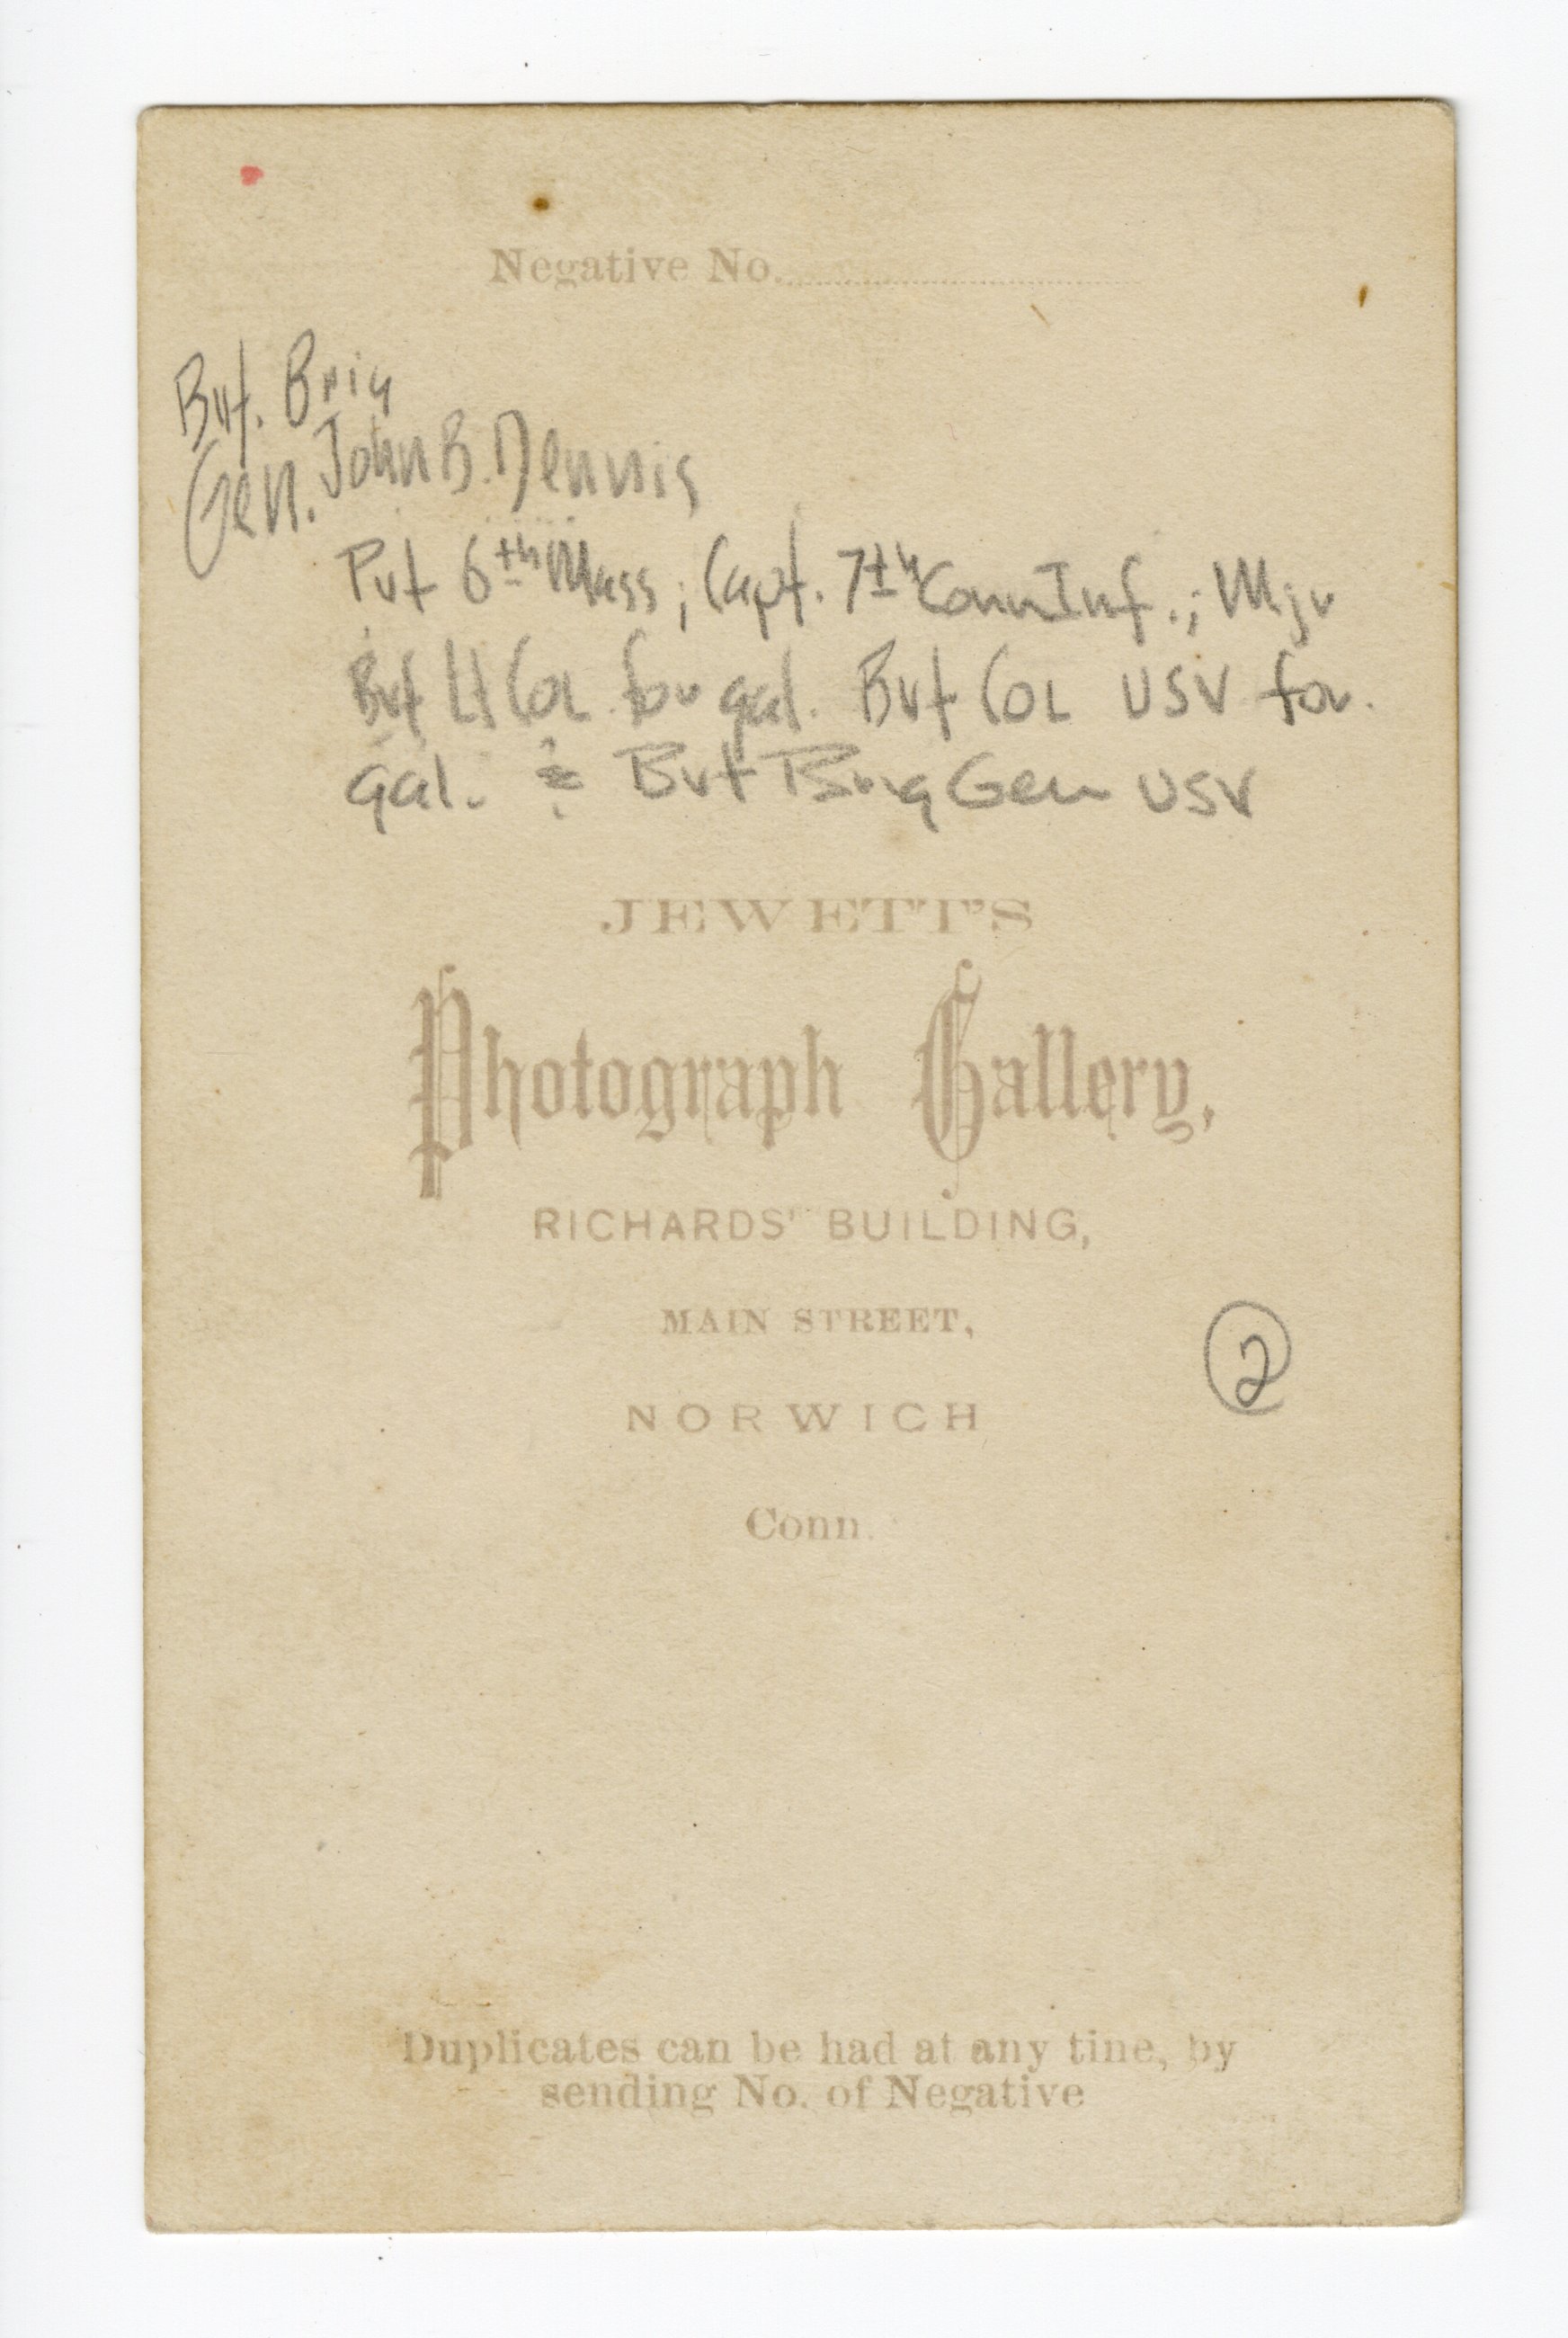 Negative No.
Bvt. Brig
Gen. John B. Dennis
Pvt 6th Mass; Capt. 7th Conn Inf.; Mjr
Bvt Lt Col for gal. Bvt Col USV for
gal. & Bvt Brig Gen USV
JEWETT'S
Photograph Gallery,
RICHARDS' BUILDING,
MAIN STREET,
2
NORWICH
Conn.
Duplicates can be had at any tine, by
sending No. of Negative